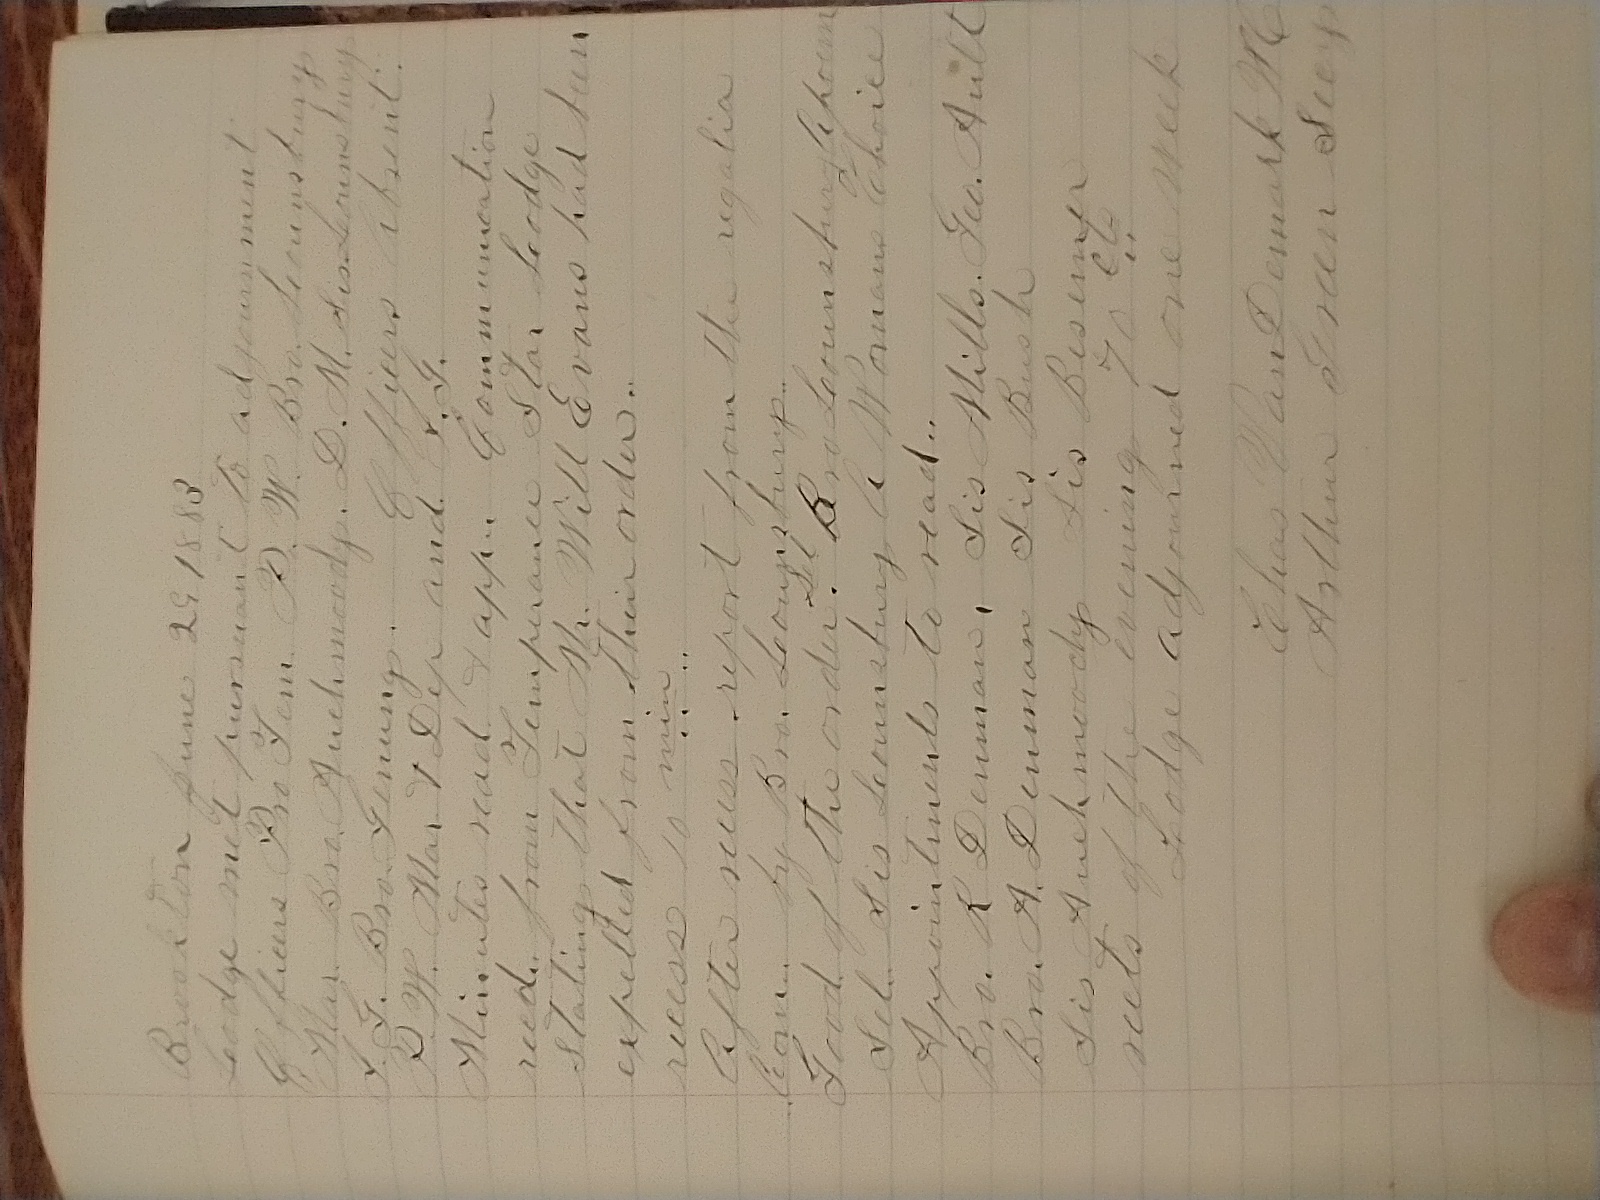 Brookton June 29 1883
Lodge met pursuant to adjournment
Officers Pro Tem. P. W. Bro. Lounsbury
Mar. Bro. Auchmoody. D. M. Sis Lounsbury
I. G. Bro. Genung. Officers absent.
P. W. Mar & Dep and I. G.
Minutes read & app.. Communication
recd.. from Temperance Star Lodge
Stating that Mr. Will Evans had been
expelled from their order..
recess 10 min..
After recess report from the regalia
Com.. by Bro. Lounsbury..
Good of the order. Sel Bro Lounsbury A poem
Sel.. Sis Lounsbury A Womans Choice
Appointments to read..
Bro. R Denman, Sis Mills. Geo. Ault
Bro. A. Denman Sis Bush
Sis Auchmoody Sis Besemer
rects of the evening 70 cts
Lodge adjourned one week
Chas VanDemark W C
Arthur Green Secy